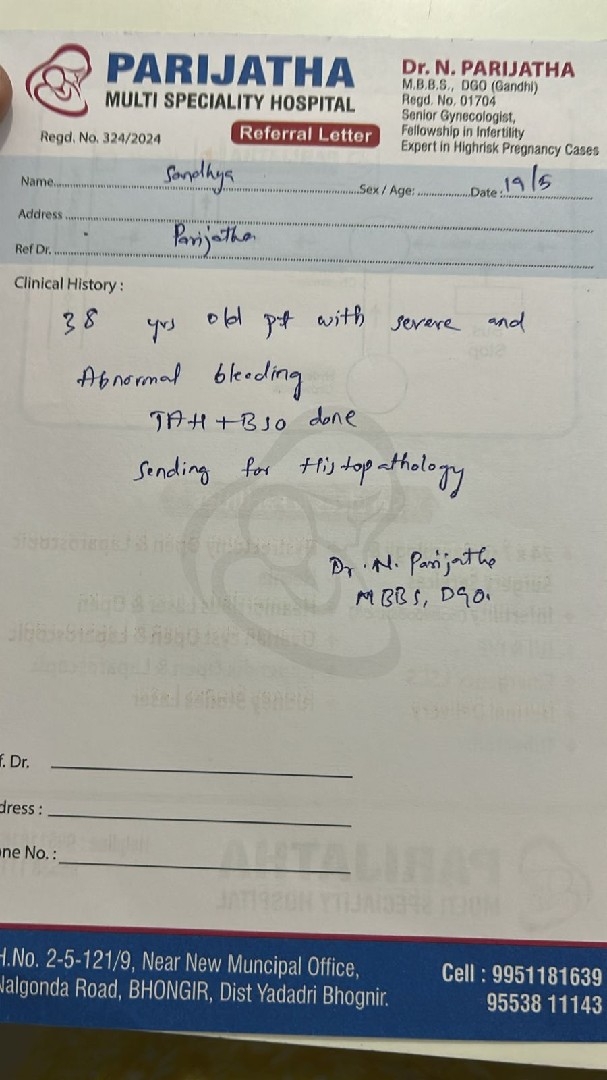 PARIJATHA
MULTI SPECIALITY HOSPITAL
Regd. No. 324/2024
Referral Letter
Dr. N. PARIJATHA
M.B.B.S., DGO (Gandhi)
Regd. No. 01704
Senior Gynecologist,
Fellowship in Infertility
Expert in Highrisk Pregnancy Cases
Name Sandhya Sex / Age: Date : 19/5
Address
Ref Dr. Parijatha
Clinical History :
38 yrs old pt with severe and
Abnormal bleeding
TAH + BSO done
Sending for Histopathology
Dr. N. Parijatha
MBBS, DGO.
f. Dr.
dress :
one No. :
H.No. 2-5-121/9, Near New Muncipal Office,
Nalgonda Road, BHONGIR, Dist Yadadri Bhognir.
Cell : 9951181639
95538 11143